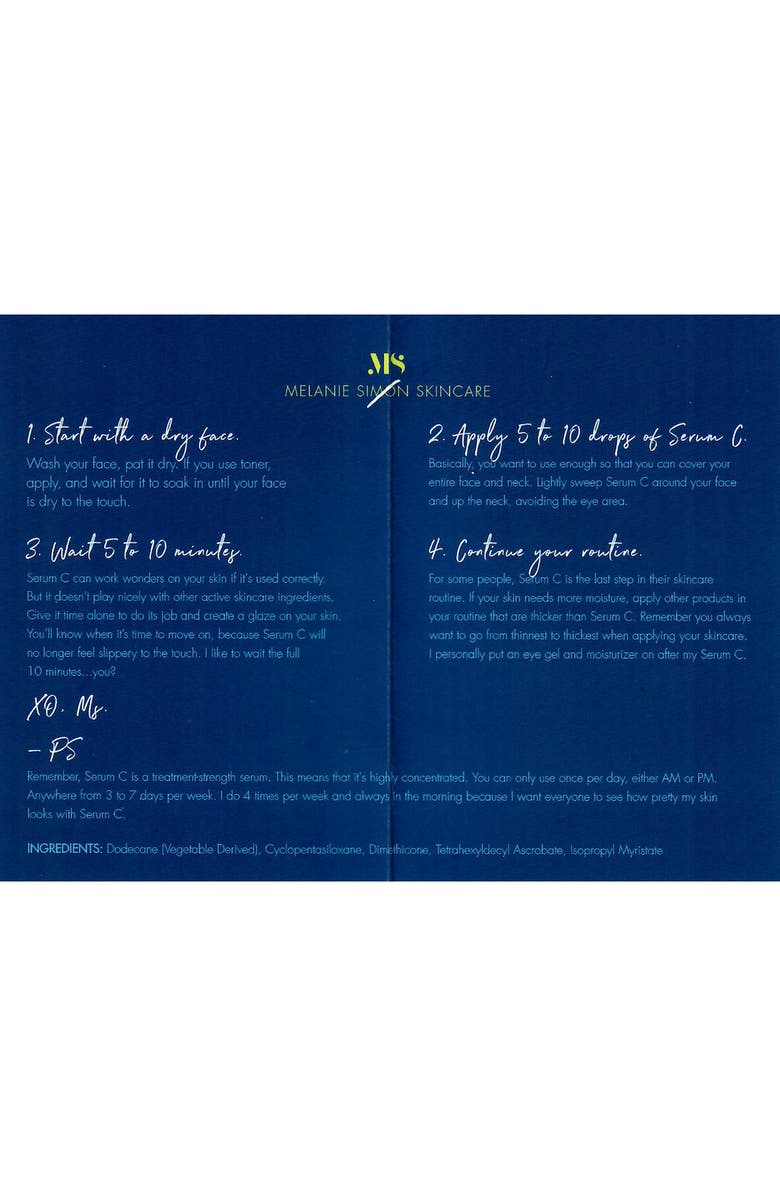 MS
MELANIE SIMON SKINCARE
1. Start with a dry face.
Wash your face, pat it dry. If you use toner,
apply, and wait for it to soak in until your face
is dry to the touch.
2. Apply 5 to 10 drops of Serum C.
Basically, you want to use enough so that you can cover your
entire face and neck. Lightly sweep Serum C around your face
and up the neck, avoiding the eye area.
3. Wait 5 to 10 minutes.
Serum C can work wonders on your skin if it's used correctly.
But it doesn't play nicely with other active skincare ingredients.
Give it time alone to do its job and create a glaze on your skin.
You'll know when it's time to move on, because Serum C will
no longer feel slippery to the touch. I like to wait the full
10 minutes...you?
4. Continue your routine.
For some people, Serum C is the last step in their skincare
routine. If your skin needs more moisture, apply other products in
your routine that are thicker than Serum C. Remember you always
want to go from thinnest to thickest when applying your skincare.
I personally put an eye gel and moisturizer on after my Serum C.
XO. Ms.
– PS
Remember, Serum C is a treatment-strength serum. This means that it's highly concentrated. You can only use once per day, either AM or PM.
Anywhere from 3 to 7 days per week. I do 4 times per week and always in the morning because I want everyone to see how pretty my skin
looks with Serum C.
INGREDIENTS: Dodecane (Vegetable Derived), Cyclopentasiloxane, Dimethicone, Tetrahexyldecyl Ascrobate, Isopropyl Myristate